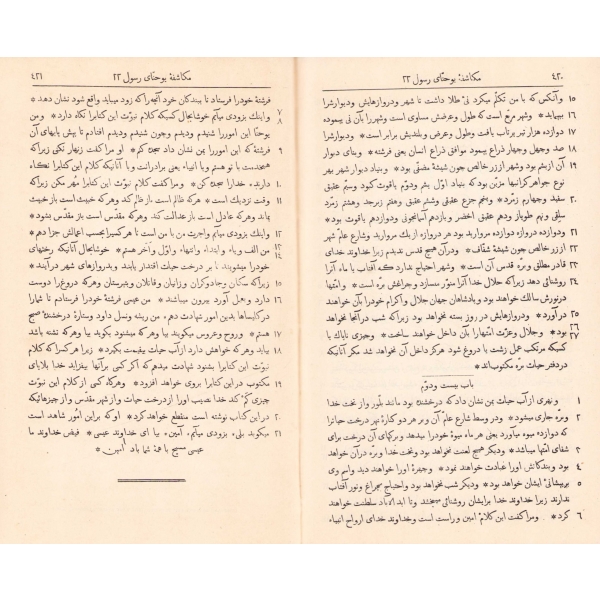 ۴۲۰
مکاشفهٔ یوحنّای رسول ۲۲
۱۵ وآنکس که با من تکلّم میکرد نی طلا داشت تا شهر ودروازهایش ودیوارشرا
بپیماید * وشهر مربّع است که طول وعرضش مساوی است وشهررا بآن نی پیموده
دوازده هزار تیر پرتاب یافت وطول وعرض وبلندیش برابر است * ودیوارشرا
صد وچهل وچهار ذراع پیمود موافق ذراع انسان یعنی فرشته * وبنای دیوار
آن از یشم بود وشهر از زر خالص چون شیشهٔ مصفّی بود * وبنیاد دیوار شهر بهر
نوع جواهر کرانبها مزیّن بود که بنیاد اوّل یشم ودوّم یاقوت کبود وسیّم عقیق
سفید وچهارم زمرّد * وپنجم جزع عقیقی وششم عقیق وهفتم زبرجد وهشتم زمرّد
سلقی ونهم طوپاز ودهم عقیق اخضر ویازدهم آسمانجونی ودوازدهم یاقوت بود *
۲۱ ودوازده دروازه دوازده مروارید بود هر دروازه از یک مروارید وشارع عامّ شهر
از زر خالص چون شیشهٔ شفّاف * ودرآن هیچ قدس ندیدم زیرا خداوند خدای
قادر مطلق وبرّه قدس آن است * وشهر احتیاج ندارد که آفتاب یا ماه آنرا
روشنائی دهد زیرا که جلال خدا آنرا منوّر میسازد وچراغش برّه است * وامّتها
درنورش سالک خواهند بود وپادشاهان جهان جلال واکرام خودرا بآن خواهند
۲۵ درآورد * ودروازهایش در روز بسته نخواهد بود زیرا که شب درآنجا نخواهد
بود * وجلال وعزّت امّتهارا بآن داخل خواهند ساخت * وچیزی ناپاک یا
کسیکه مرتکب عمل زشت یا دروغ شود هرکز داخل آن نخواهد شد مکر آنانیکه
دردفتر حیات برّه مکتوب‌اند *
باب بیست ودوّم
۱ ونهری از آب حیات بمن نشان داد که درخشنده بود مانند بلّور واز تخت خدا
۲ وبرّه جاری میشود * ودر وسط شارع عامّ آن وبر هر دو کنارهٔ نهر درخت حیاترا
که دوازده میوه میآورد یعنی هر ماه میوهٔ خودرا میدهد وبرکهای آن درخت برای
۳ شفای امّتها میباشد * ودیکر هیچ لعنت نخواهد بود وتخت خدا وبرّه درآن خواهد
۴ بود وبندکانش اورا عبادت خواهند نمود * وچهرهٔ اورا خواهند دید واسم وی
۵ برپیشانیٔ ایشان خواهد بود * ودیکر شب نخواهد بود واحتیاج بچراغ ونور آفتاب
ندارند زیرا خداوند خدا برایشان روشنائی میبخشد وتا ابد الآباد سلطنت خواهند
۶ کرد * ومرا کفت این کلام امین وراست است وخداوند خدای ارواح انبیاء
مکاشفهٔ یوحنّای رسول ۲۲
۴۲۱
فرشتهٔ خودرا فرستاد تا ببندکان خود آنچه‌را که زود میباید واقع شود نشان دهد *
۷ واینک بزودی میآیم خوشابحال کسیکه کلام نبوّت این کتابرا نکاه دارد * ومن
یوحنّا این اموررا شنیدم ودیدم وچون شنیدم ودیدم افتادم تا پیش پایهای آن
۹ فرشته که این اموررا بمن نشان داد سجده کنم * او مرا کفت زنهار نکنی زیرا که
همخدمت با تو هستم وبا انبیاء یعنی برادرانت وبا آنانیکه کلام این کتابرا نکاه
۱۰ دارند * خدارا سجده کن * ومرا کفت کلام نبوّت این کتابرا مهر مکن زیراکه
۱۱ وقت نزدیک است * هرکه ظالم است باز ظلم کند وهرکه خبیث است باز خبیث
بماند وهرکه عادل است باز عدالت کند وهرکه مقدّس است باز مقدّس بشود *
۱۲ واینک بزودی میآیم واجرت من با من است تا هرکسیرا بحسب اعمالش جزا دهم *
من الف ویاء وابتداء وانتهاء واوّل وآخر هستم * خوشابحال آنانیکه رختهای
خودرا میشویند تا بر درخت حیات اقتدار یابند وبدروازهای شهر درآیند *
۱۵ زیراکه سکان وجادوکران وزانیان وقاتلان وبت‌پرستان وهرکه دروغ‌را دوست
۱۶ دارد وبعمل آورد بیرون میباشند * من عیسی فرشتهٔ خودرا فرستادم تا شمارا
درکلیساها بدین امور شهادت دهم * من ریشه ونسل داود وستارهٔ درخشندهٔ صبح
۱۷ هستم * وروح وعروس میکویند بیا وهرکه میشنود بکوید بیا وهرکه تشنه باشد
۱۸ بیاید وهرکه خواهش دارد از آب حیات بیقیمت بکیرد * زیرا هرکس‌را که کلام
نبوّت این کتابرا بشنود شهادت میدهم که اکر کسی برآنها بیفزاید خدا بلایای
۱۹ مکتوب در این کتابرا بروی خواهد افزود * وهرکاه کسی از کلام این نبوّت
چیزی کم کند خدا نصیب اورا از درخت حیات واز شهر مقدّس واز چیزهائیکه
۲۰ در این کتاب نوشته است منقطع خواهد کرد * او که براین امور شاهد است
۲۱ میکوید بلی بزودی میآیم. آمین. بیا ای خداوند عیسی * فیض خداوند ما
عیسی مسیح با همهٔ شما باد آمین *